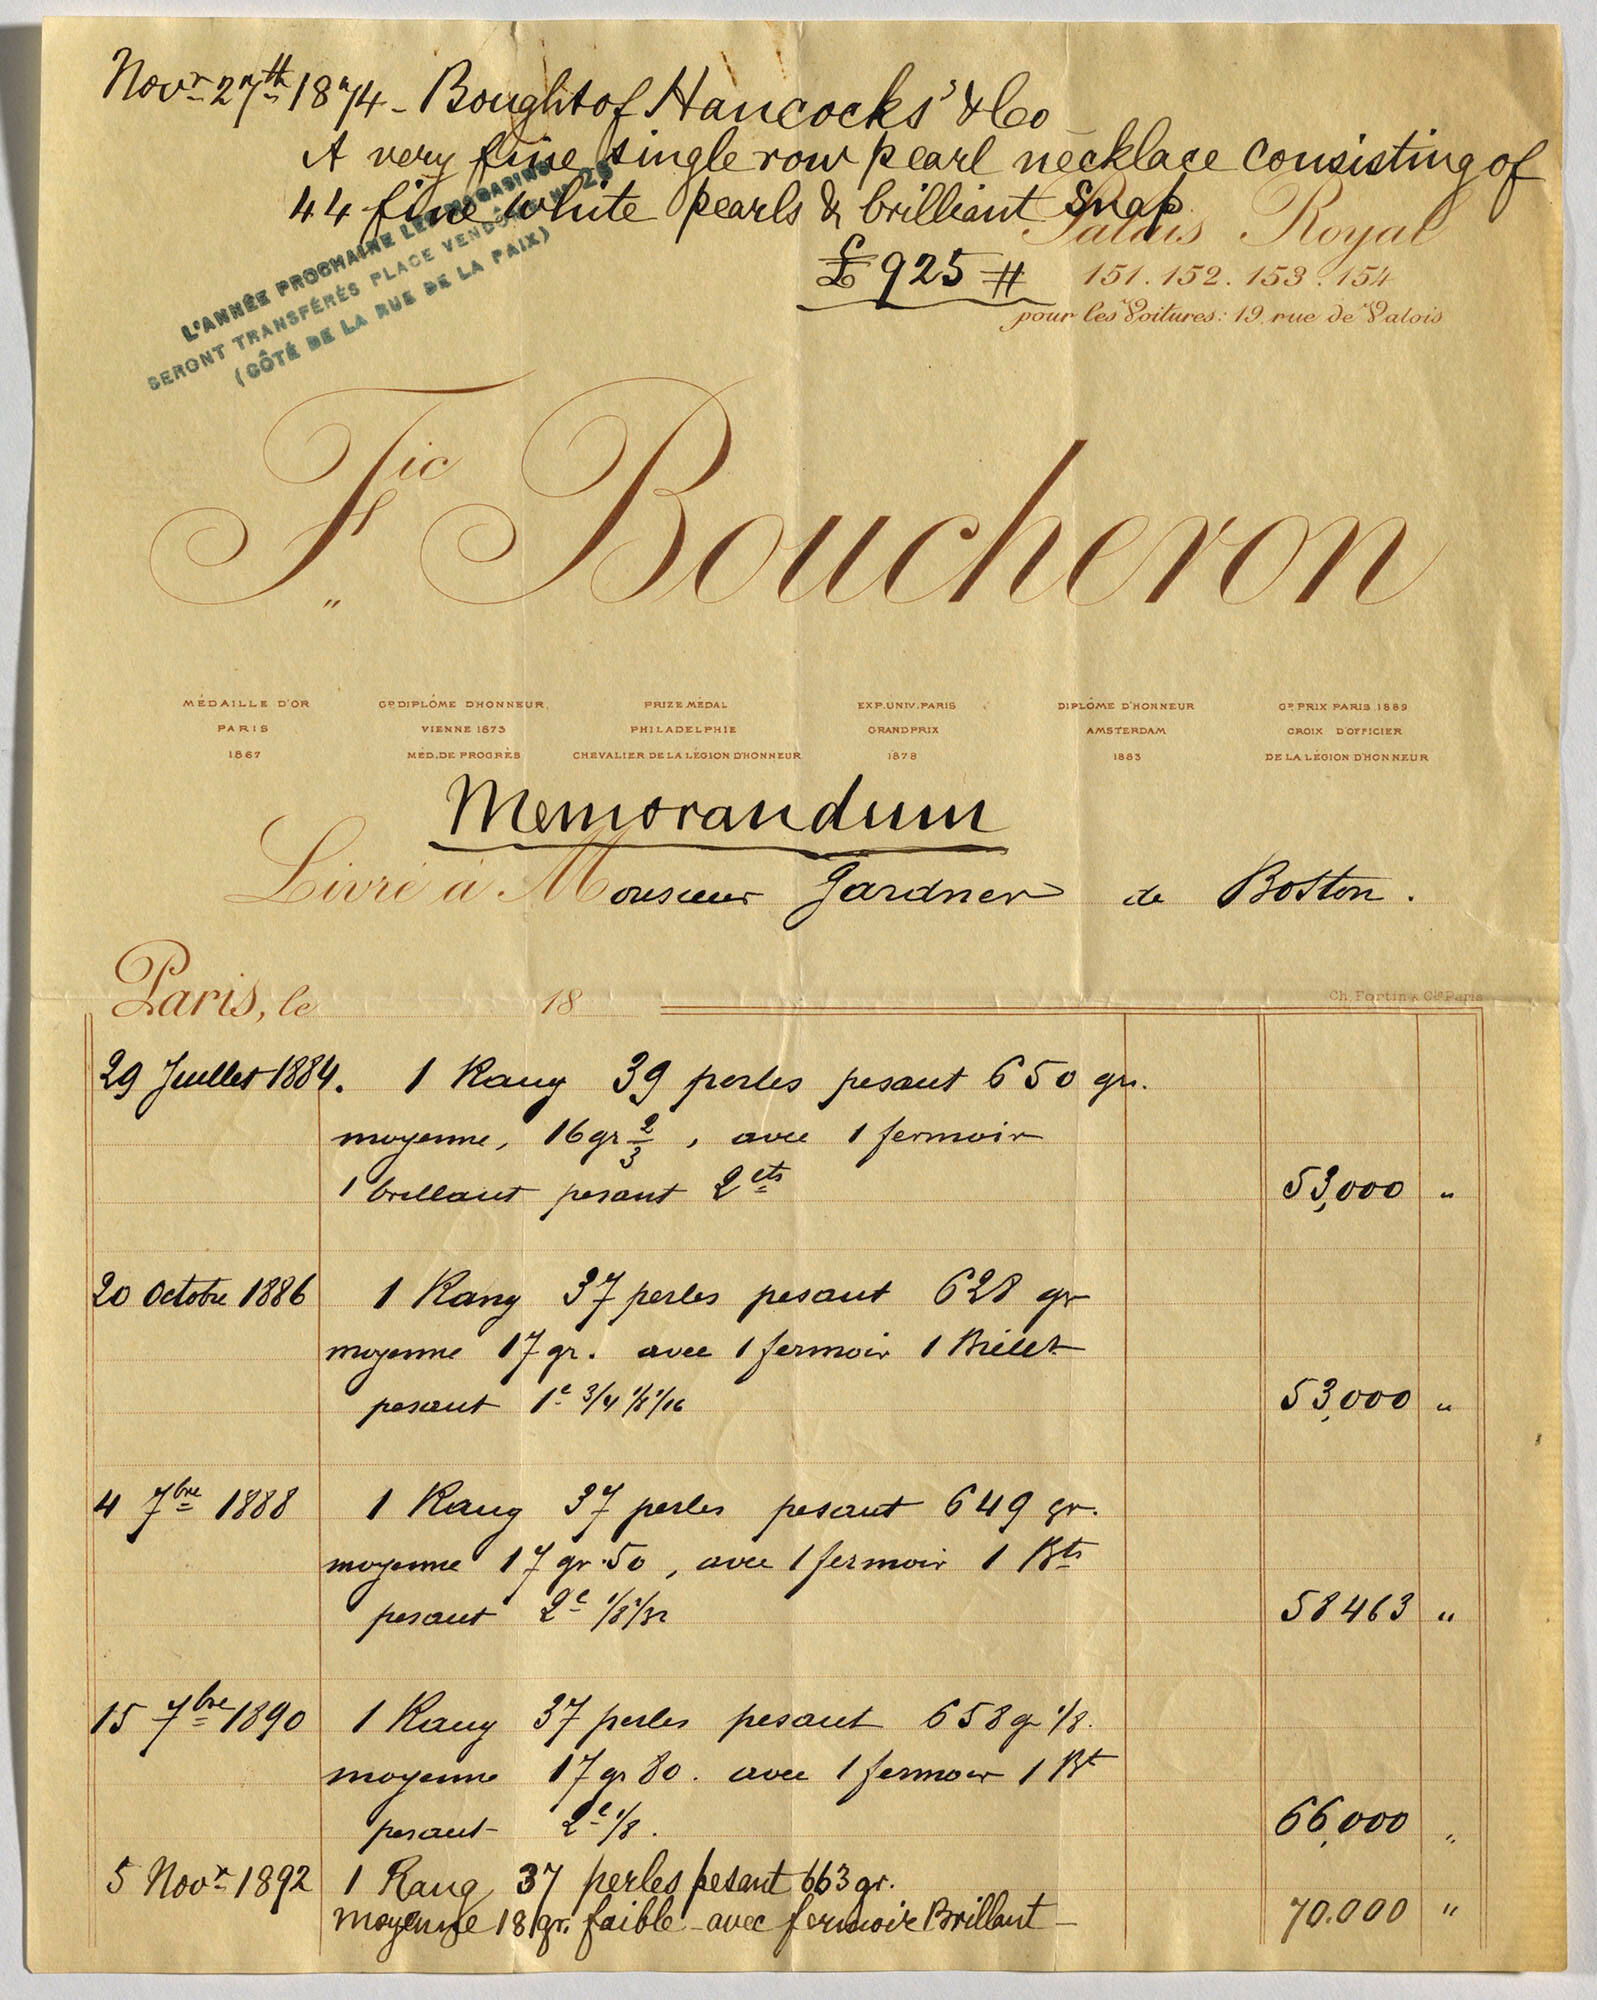 Novr 27th 1874 - Bought of Hancocks' & Co
A very fine single row pearl necklace consisting of
44 fine white pearls & brilliant snap
£925 #
L'ANNÉE PROCHAINE LES MAGASINS
SERONT TRANSFÉRÉS PLACE VENDÔME No 26
(CÔTÉ DE LA RUE DE LA PAIX)
Palais Royal
151.152.153.154
pour les Voitures: 19, rue de Valois
Fic Boucheron
MÉDAILLE D'OR
PARIS
1867
GD. DIPLÔME D'HONNEUR
VIENNE 1873
MÉD. DE PROGRÈS
PRIZE MÉDAL
PHILADELPHIE
CHEVALIER DE LA LÉGION D'HONNEUR
EXP. UNIV. PARIS
GRAND PRIX
1878
DIPLÔME D'HONNEUR
AMSTERDAM
1883
GD. PRIX PARIS 1889
CROIX D'OFFICIER
DE LA LÉGION D'HONNEUR
Memorandum
Livré à Monsieur Gardner de Boston.
Paris, le 18
Ch. Fortin & Cie Paris
29 Juillet 1884. 1 Rang 39 perles pesant 650 grs.
moyenne, 16gr 2/3, avec 1 fermoir
1 brillant pesant 2 cts 53,000 "
20 Octobre 1886 1 Rang 37 perles pesant 628 gr
moyenne 17 gr. avec 1 fermoir 1 Brillt
pesant 1c 3/4 1/8 1/16 53,000 "
4 7bre 1888 1 Rang 37 perles pesant 649 gr.
moyenne 17 gr. 50, avec 1 fermoir 1 Bts
pesant 2c 1/8 1/32 58463 "
15 7bre 1890 1 Rang 37 perles pesant 658 gr 1/8.
moyenne 17 gr 80. avec 1 fermoir 1 Bt
pesant 2c 1/8. 66,000 "
5 Novr 1892 1 Rang 37 perles pesant 663 gr.
moyenne 18 gr. faible - avec fermoir Brillant - 70.000 "